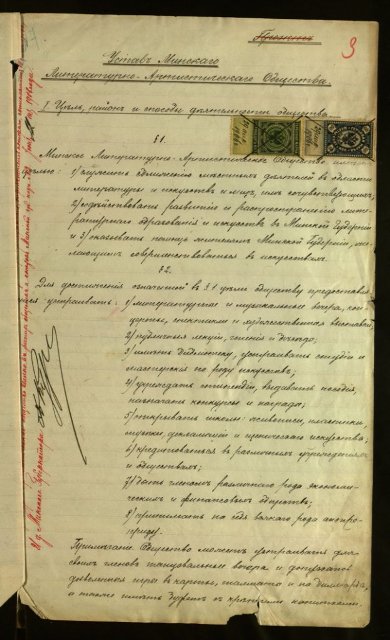 Проектъ
3
Уставъ Минскаго
Литературно-Артистическаго Общества.
I. Цѣль, районъ и способы дѣятельности общества.
§1.
Минское Литературно-Артистическое Общество имѣетъ
цѣлью: 1) служить единенію мѣстныхъ дѣятелей въ области
литературы и искусствъ и лицъ, имъ сочувствующихъ,
2) содѣйствовать развитію и распространенію лите-
ратурнаго образованія и искусствъ въ Минской Губерніи
и 3) оказывать помощь жителямъ Минской Губерніи, же-
лающимъ совершенствоваться въ искусствахъ.
§2.
Для достиженія означенной въ §1 цѣли обществу предоставля-
ется устраивать: 1) литературные и музыкальные вечера, кон-
церты, спектакли и художественныя выставки;
2) публичныя лекціи, чтенія и бесѣды;
3) имѣть библіотеку, устраивать студіи и
мастерскія по роду искусствъ;
4) учреждать стипендіи, выдавать пособія,
назначать конкурсы и награды;
5) открывать школы: живописи, пластики,
музыки, декламаціи и сценическаго искусства;
6) кредитоваться въ различныхъ учрежденіяхъ
и обществахъ;
7) дѣлать членамъ различнаго рода экономи-
ческія и финансовыя
8) принимать на себя всякаго рода антре-
призу.
Примѣчаніе. Общество можетъ устраивать для
своихъ членовъ танцовальные вечера и допускать
дозволенныя игры въ карты, шахматы и на билліардѣ,
а также имѣть буфетъ съ крѣпкими напитками